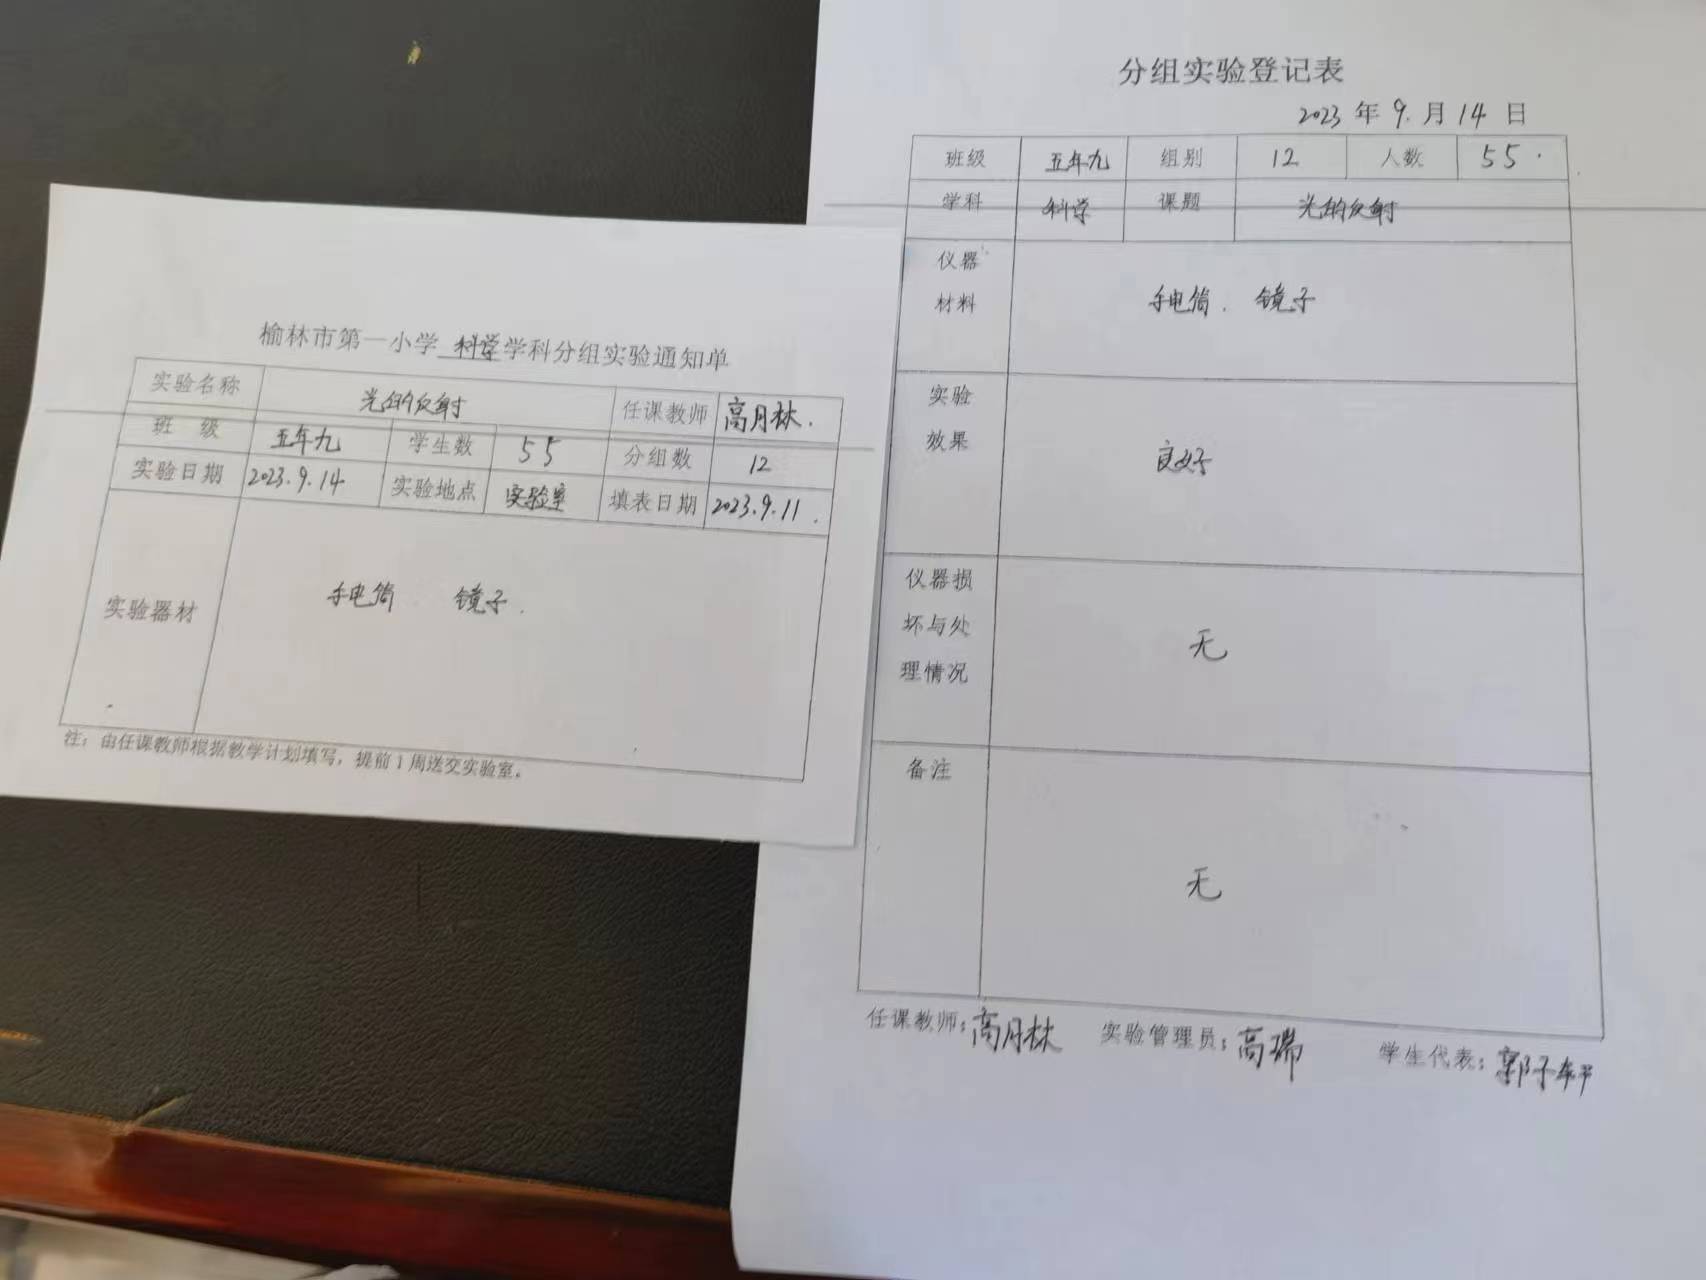 榆林市第一小学 科学学科分组实验通知单
实验名称 光的反射 任课教师 高月林.
班 级 五年九 学生数 55 分组数 12
实验日期 2023.9.14 实验地点 实验室 填表日期 2023.9.11.
实验器材 手电筒 镜子.
注：由任课教师根据教学计划填写，提前1周送交实验室。
分组实验登记表
2023 年 9. 月 14 日
班级 五年九 组别 12 人数 55.
学科 科学 课题 光的反射
仪器
材料
手电筒. 镜子
实验
效果
良好
仪器损
坏与处
理情况
无
备注
无
任课教师：高月林 实验管理员：高瑞 学生代表：郭子轩